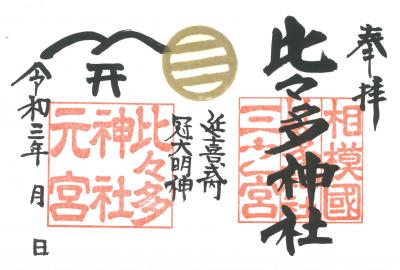 奉拝
相模國
三之宮
比々多神社
延喜式内
冠大明神
比々多
神社
元宮
令和三年 月 日